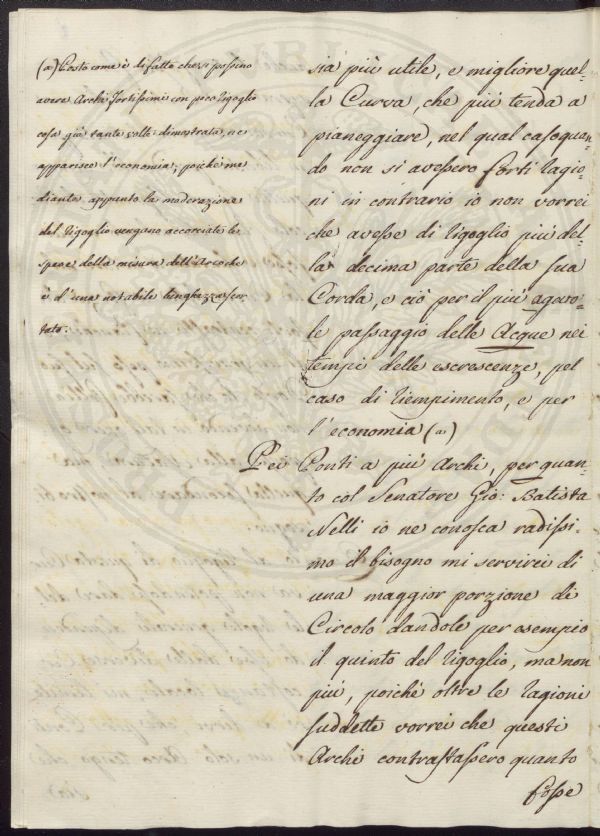 (a) Posto come è di fatto che si possino
avere Archi Fortissimi con poco rigoglio
cosa già tante volte dimostrata, ne
apparisce l'economia; poiché me
diante appunto la moderazione
del rigoglio vengano accorciate le
spese della misura dell'Arco che
è d'una notabile lunghezza ser
rato:
sia più utile, e migliore quel=
la Curva, che più tenda a
pianeggiare, nel qual caso quan=
do non si avessero forti ragio=
ni in contrario io non vorrei
che avesse di rigoglio più del=
la decima parte della sua
Corda, e ciò per il più agevo=
le passaggio delle Acque nei
tempi delle escrescenze, pel
caso di riempimento, e per
l'economia (a)
Pei Ponti a più Archi, per quan=
to col Senatore Gio: Batista
Nelli io ne conosca radissi=
mo il bisogno mi servirei di
una maggior porzione di
Circolo dandole per esempio
il quinto del rigoglio, ma non
più, poiché oltre le ragioni
suddette vorrei che questi
Archi contrastassero quanto
fosse